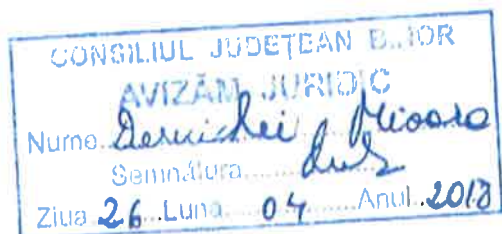 CONSILIUL JUDEȚEAN B..IOR
AVIZĂM JURIDIC
Nume Mioara
Semnătura
Ziua 26 Luna 04 Anul 2018